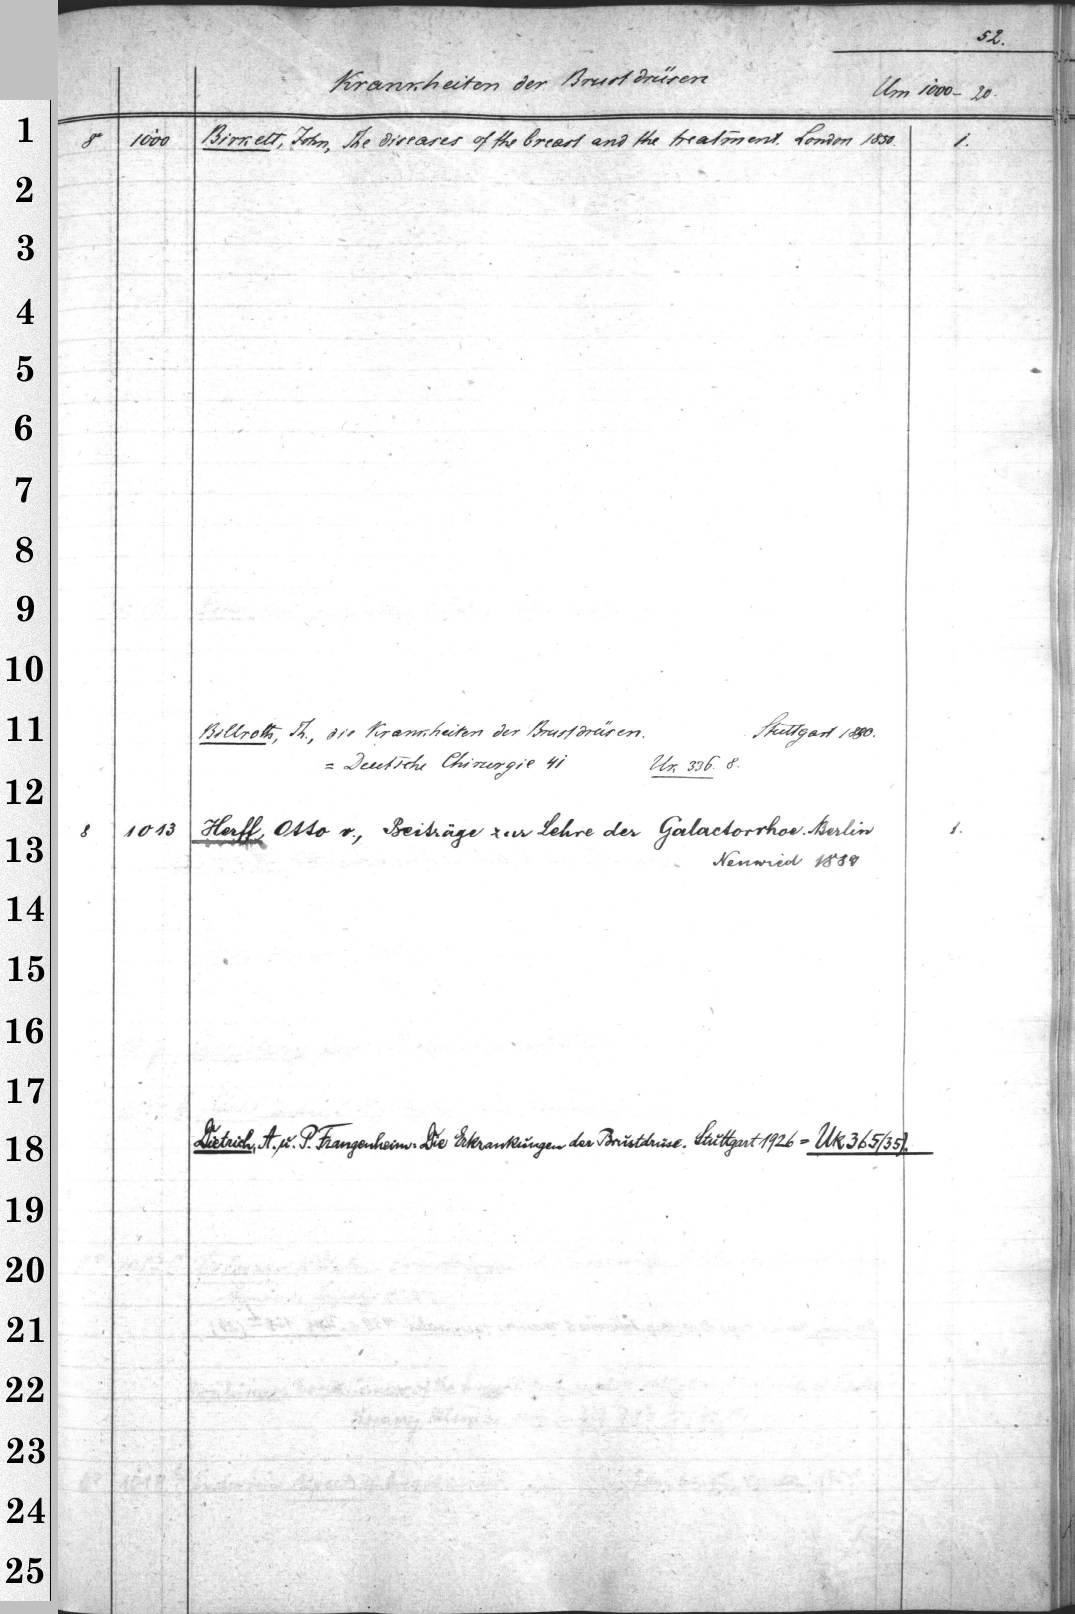 52.
Krankheiten der Brustdrüsen
Um 1000-20.
1
8 1000 Birkett, John, The diseases of the breast and the treatment. London 1850. 1.
2
3
4
5
6
7
8
9
10
11
Billroth, Th., die Krankheiten der Brustdrüsen. Stuttgart 1880.
= Deutsche Chirurgie 41 Uk 336. 8.
12
8 1013 Herff, Otto v., Beiträge zur Lehre der Galactorrhoe. Berlin 1.
13
Neuwied 1889
14
15
16
17
18
Dietrich, A. u. P. Frangenheim: Die Erkrankungen der Brustdrüse. Stuttgart 1926 = Uk 365/35].
19
20
21
22
23
24
25